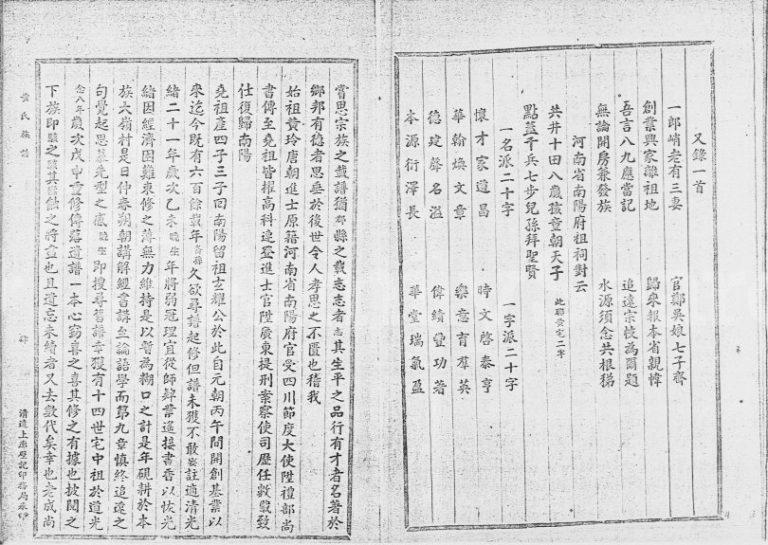 又錄一首
一郎峭老有三妻　官鄭吳娘七子齊
創業興家離祖地　歸來報本省親幃
吾言八九應當記　追遠宗枝為爾題
無論開房兼發族　水源須念共根稊
河南省南陽府祖祠對云
共井十田八歲孩童朝天子
點蓋千兵七步兒孫拜聖賢　此聯黃宅二字
一名派二十字　一字派二十字
懷才家道昌　時文啓泰亨
華翰煥文章　樂意育羣英
德建聲名溢　偉績豐功著
本源衍澤長　華堂瑞氣盈
嘗思宗族之載譜猶郡縣之載志志者志其生平之品行有才者名著於
鄉邦有德者思垂於後世令人孝思之不匱也稽我
始祖黃玲唐朝進士原籍河南省南陽府官受四川節度大使陞禮部尚
書傳至堯祖皆擢高科連登進士官陞廣東提刑案察使司歷任數載致
仕復歸南陽
堯祖產四子三子回南陽留祖玄耀公於此自元朝丙午間開創基業以
來迄今既有六百餘載年久欲尋譜起修但譜未獲不敢妄註適清光
緒二十一年歲次乙未晚生年將弱冠理宜從師肄業遙接書香以恢光
緒因經濟困難束修之薄無力維持是以暫為糊口之計是年硯耕於本
族大嶺村是日仲春朔朝講解經書講至論語學而第九章慎終追遠之
句覺起思慕先型之感晚生即搜尋舊譜幸獲有十四世宅中祖於道光
念八年歲次戊申重修傳落遺譜一本心竊喜之喜其修之有據也披閱之
下族即駭之駭其蝕之將盡也且遺忘未續者又去數代矣幸也老成尚
黃氏族譜
序
清遠上廓歷記印務局承印